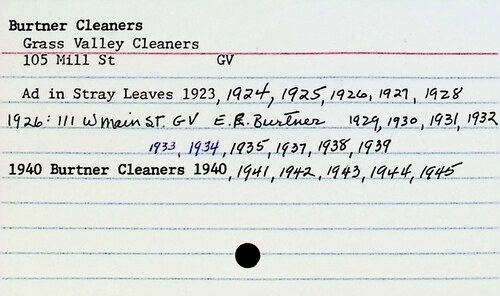 Burtner Cleaners
Grass Valley Cleaners
105 Mill St GV
Ad in Stray Leaves 1923, 1924, 1925, 1926, 1927, 1928
1926: 111 W Main St. GV E.R. Burtner 1929, 1930, 1931, 1932
1933, 1934, 1935, 1937, 1938, 1939
1940 Burtner Cleaners 1940, 1941, 1942, 1943, 1944, 1945